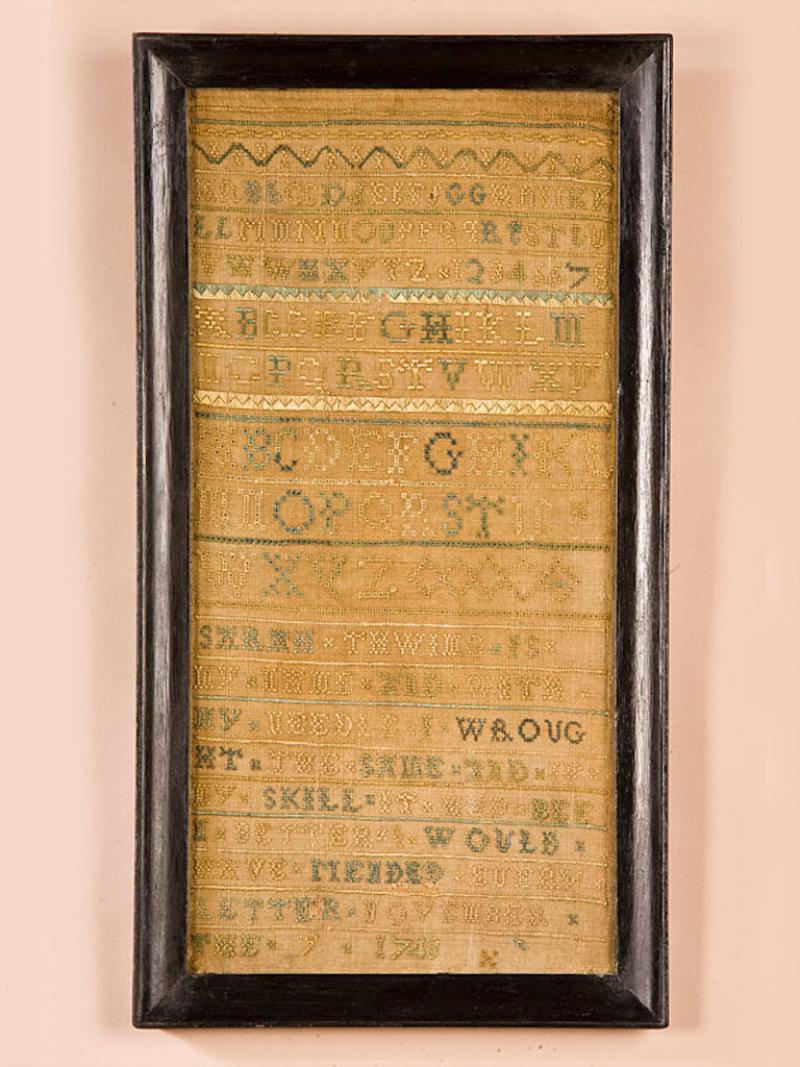 B b C C D d E e F f G G H h I K k
L L M M N N O O P P Q q R r S T t U
V W W X X Y Y Z 1 2 3 4 5 6 7 8
A B C D E F G H I K L M
N O P Q R S T V W X Y
A B C D E F G H I K L
M N O P Q R S T U
W X Y Z
SARAH THWING IS
MY NAME AND WITH
MY NEEDLE I WROUG
HT THE SAME AND IF
MY SKILL IT HAD BEE
N BETTER I WOULD
HAVE MENDED EVERY
LETTER NOVEMBER
THE 7